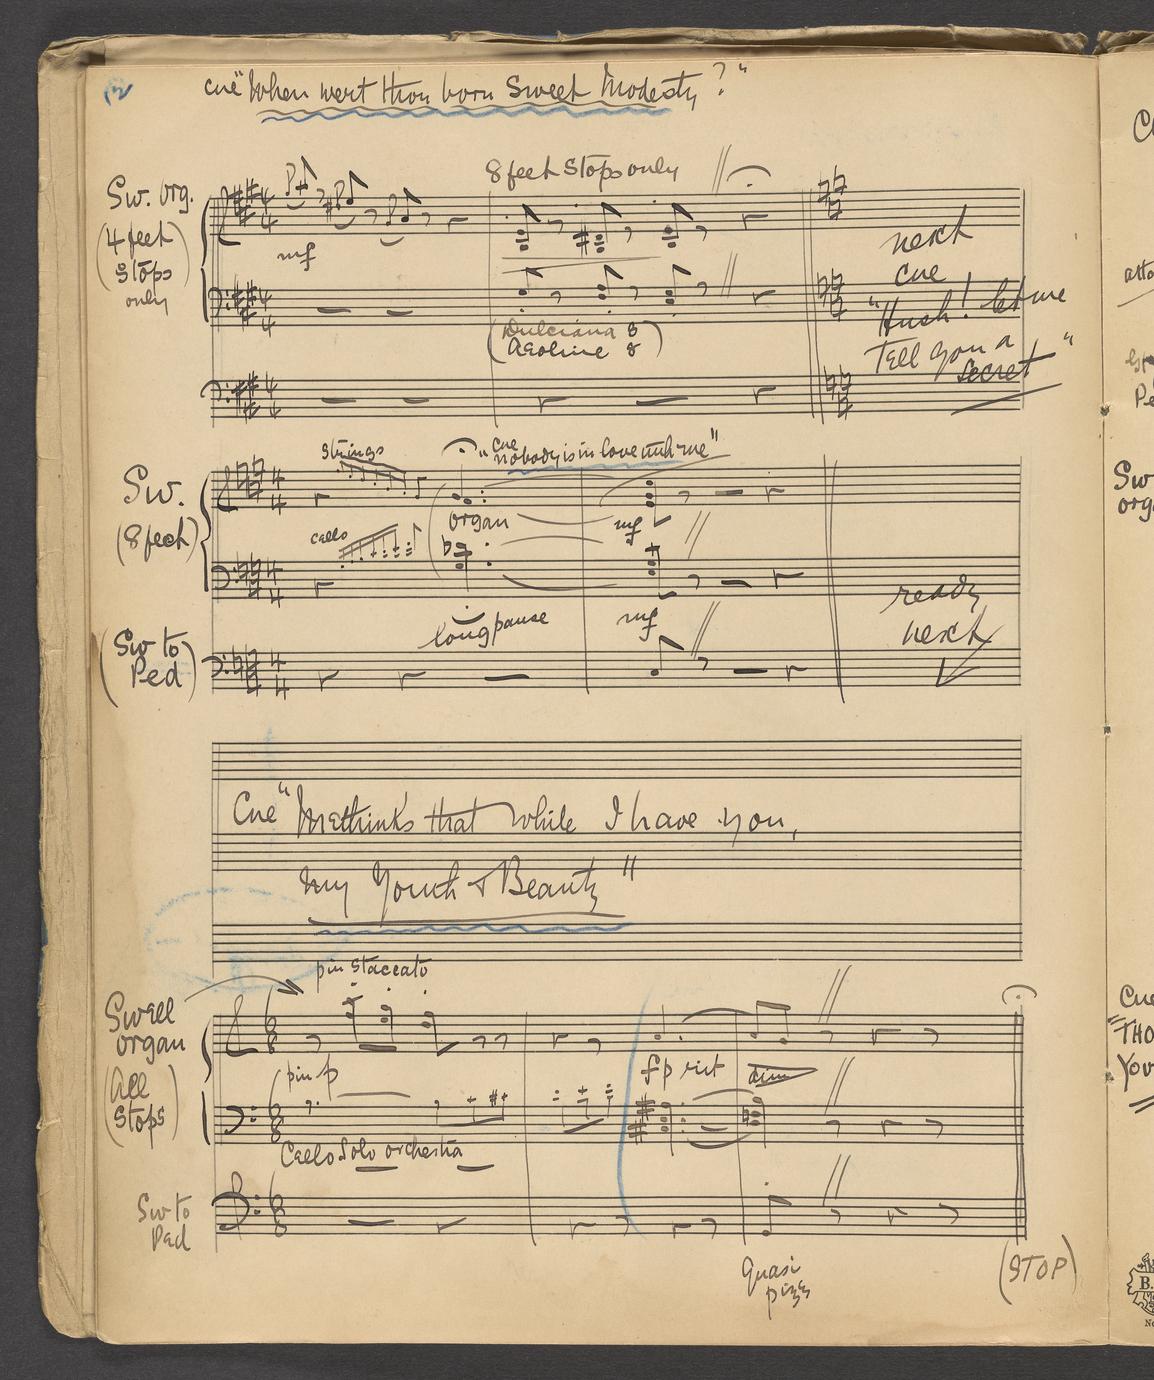 2
cue "When wert thou born Sweet Modesty?"
8 feet Stops only
Sw. Org.
(4 feet
Stops
only
mf
(Dulciana 8
Aeoline 8)
next
cue
"Hush! let me
Tell you a
Secret"
Strings
cue
"nobody is in love with me"
Sw.
(8 feet)
organ
mf
cello
long pause
mf
(Sw to
Ped)
ready
next
Cue "Methinks that while I have you,
my Youth & Beauty"
Swell
organ
(All
Stops)
staccato
p
fp rit
dim
Cello Solo orchestra
Sw to
Ped
quasi
pizz
(STOP)
Sw
org
Cue
"THO
You
B.